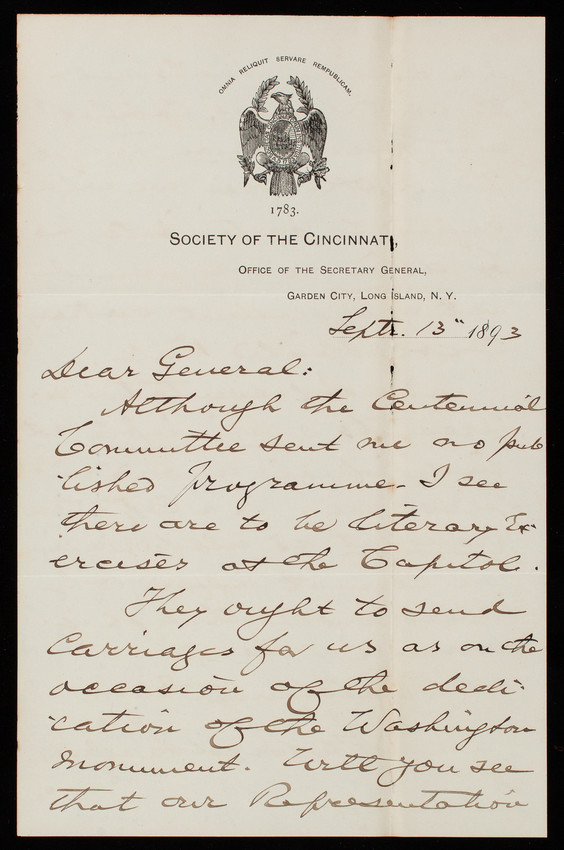 OMNIA RELIQUIT SERVARE REMPUBLICAM.
1783.
SOCIETY OF THE CINCINNATI,
OFFICE OF THE SECRETARY GENERAL,
GARDEN CITY, LONG ISLAND, N. Y.
Septr. 13" 1893
Dear General:
Although the Centennial
Committee sent me no pub
-lished programme - I see
there are to be literary Ex-
ercises at the Capitol.
They ought to send
Carriages for us as on the
occasion of the dedi-
-cation of the Washington
Monument. Will you see
that our Representation